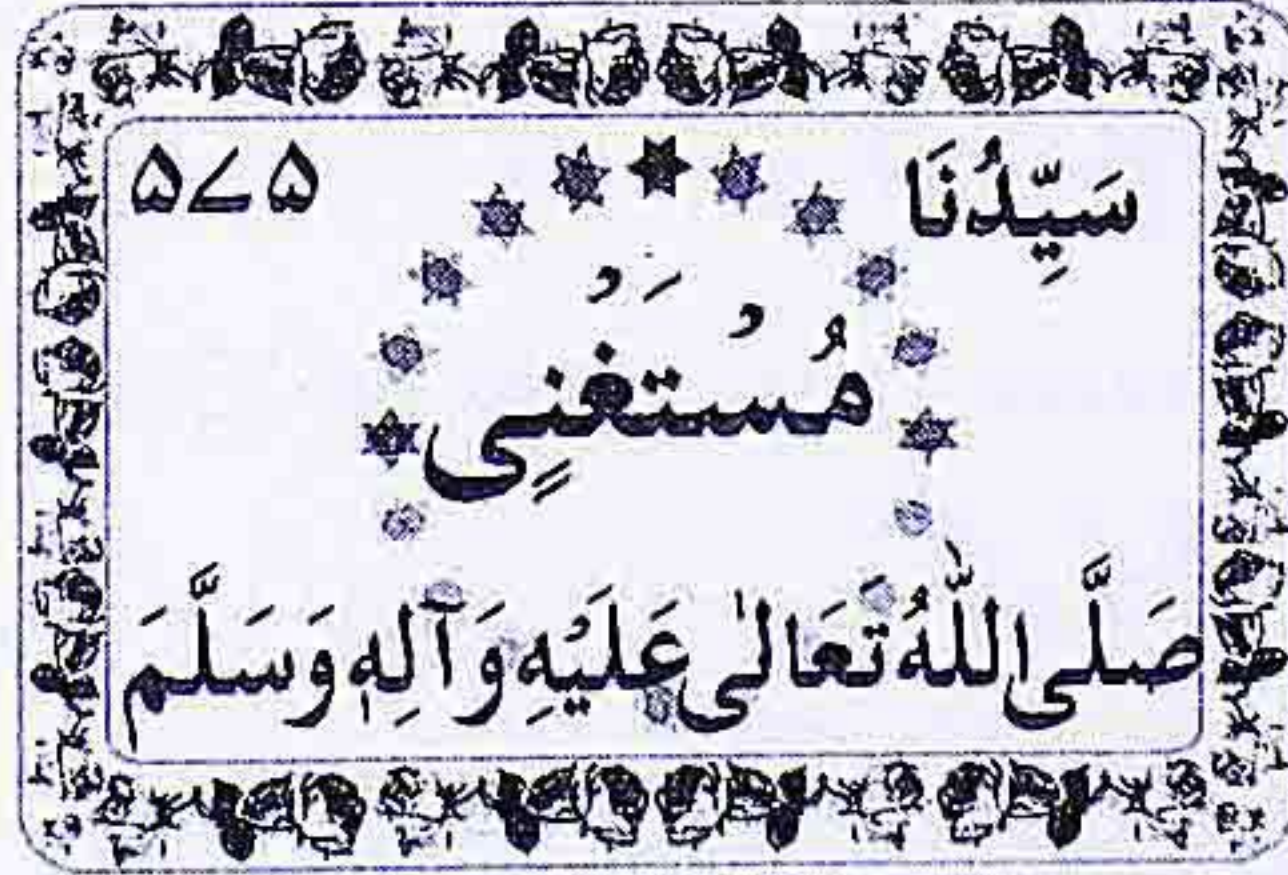 سَيِّدُنَا ۵۷۵
مُسْتَغْنٍی
صَلَّی اللّٰهُ تَعَالٰی عَلَيْهِ وَآلِهٖ وَسَلَّمَ